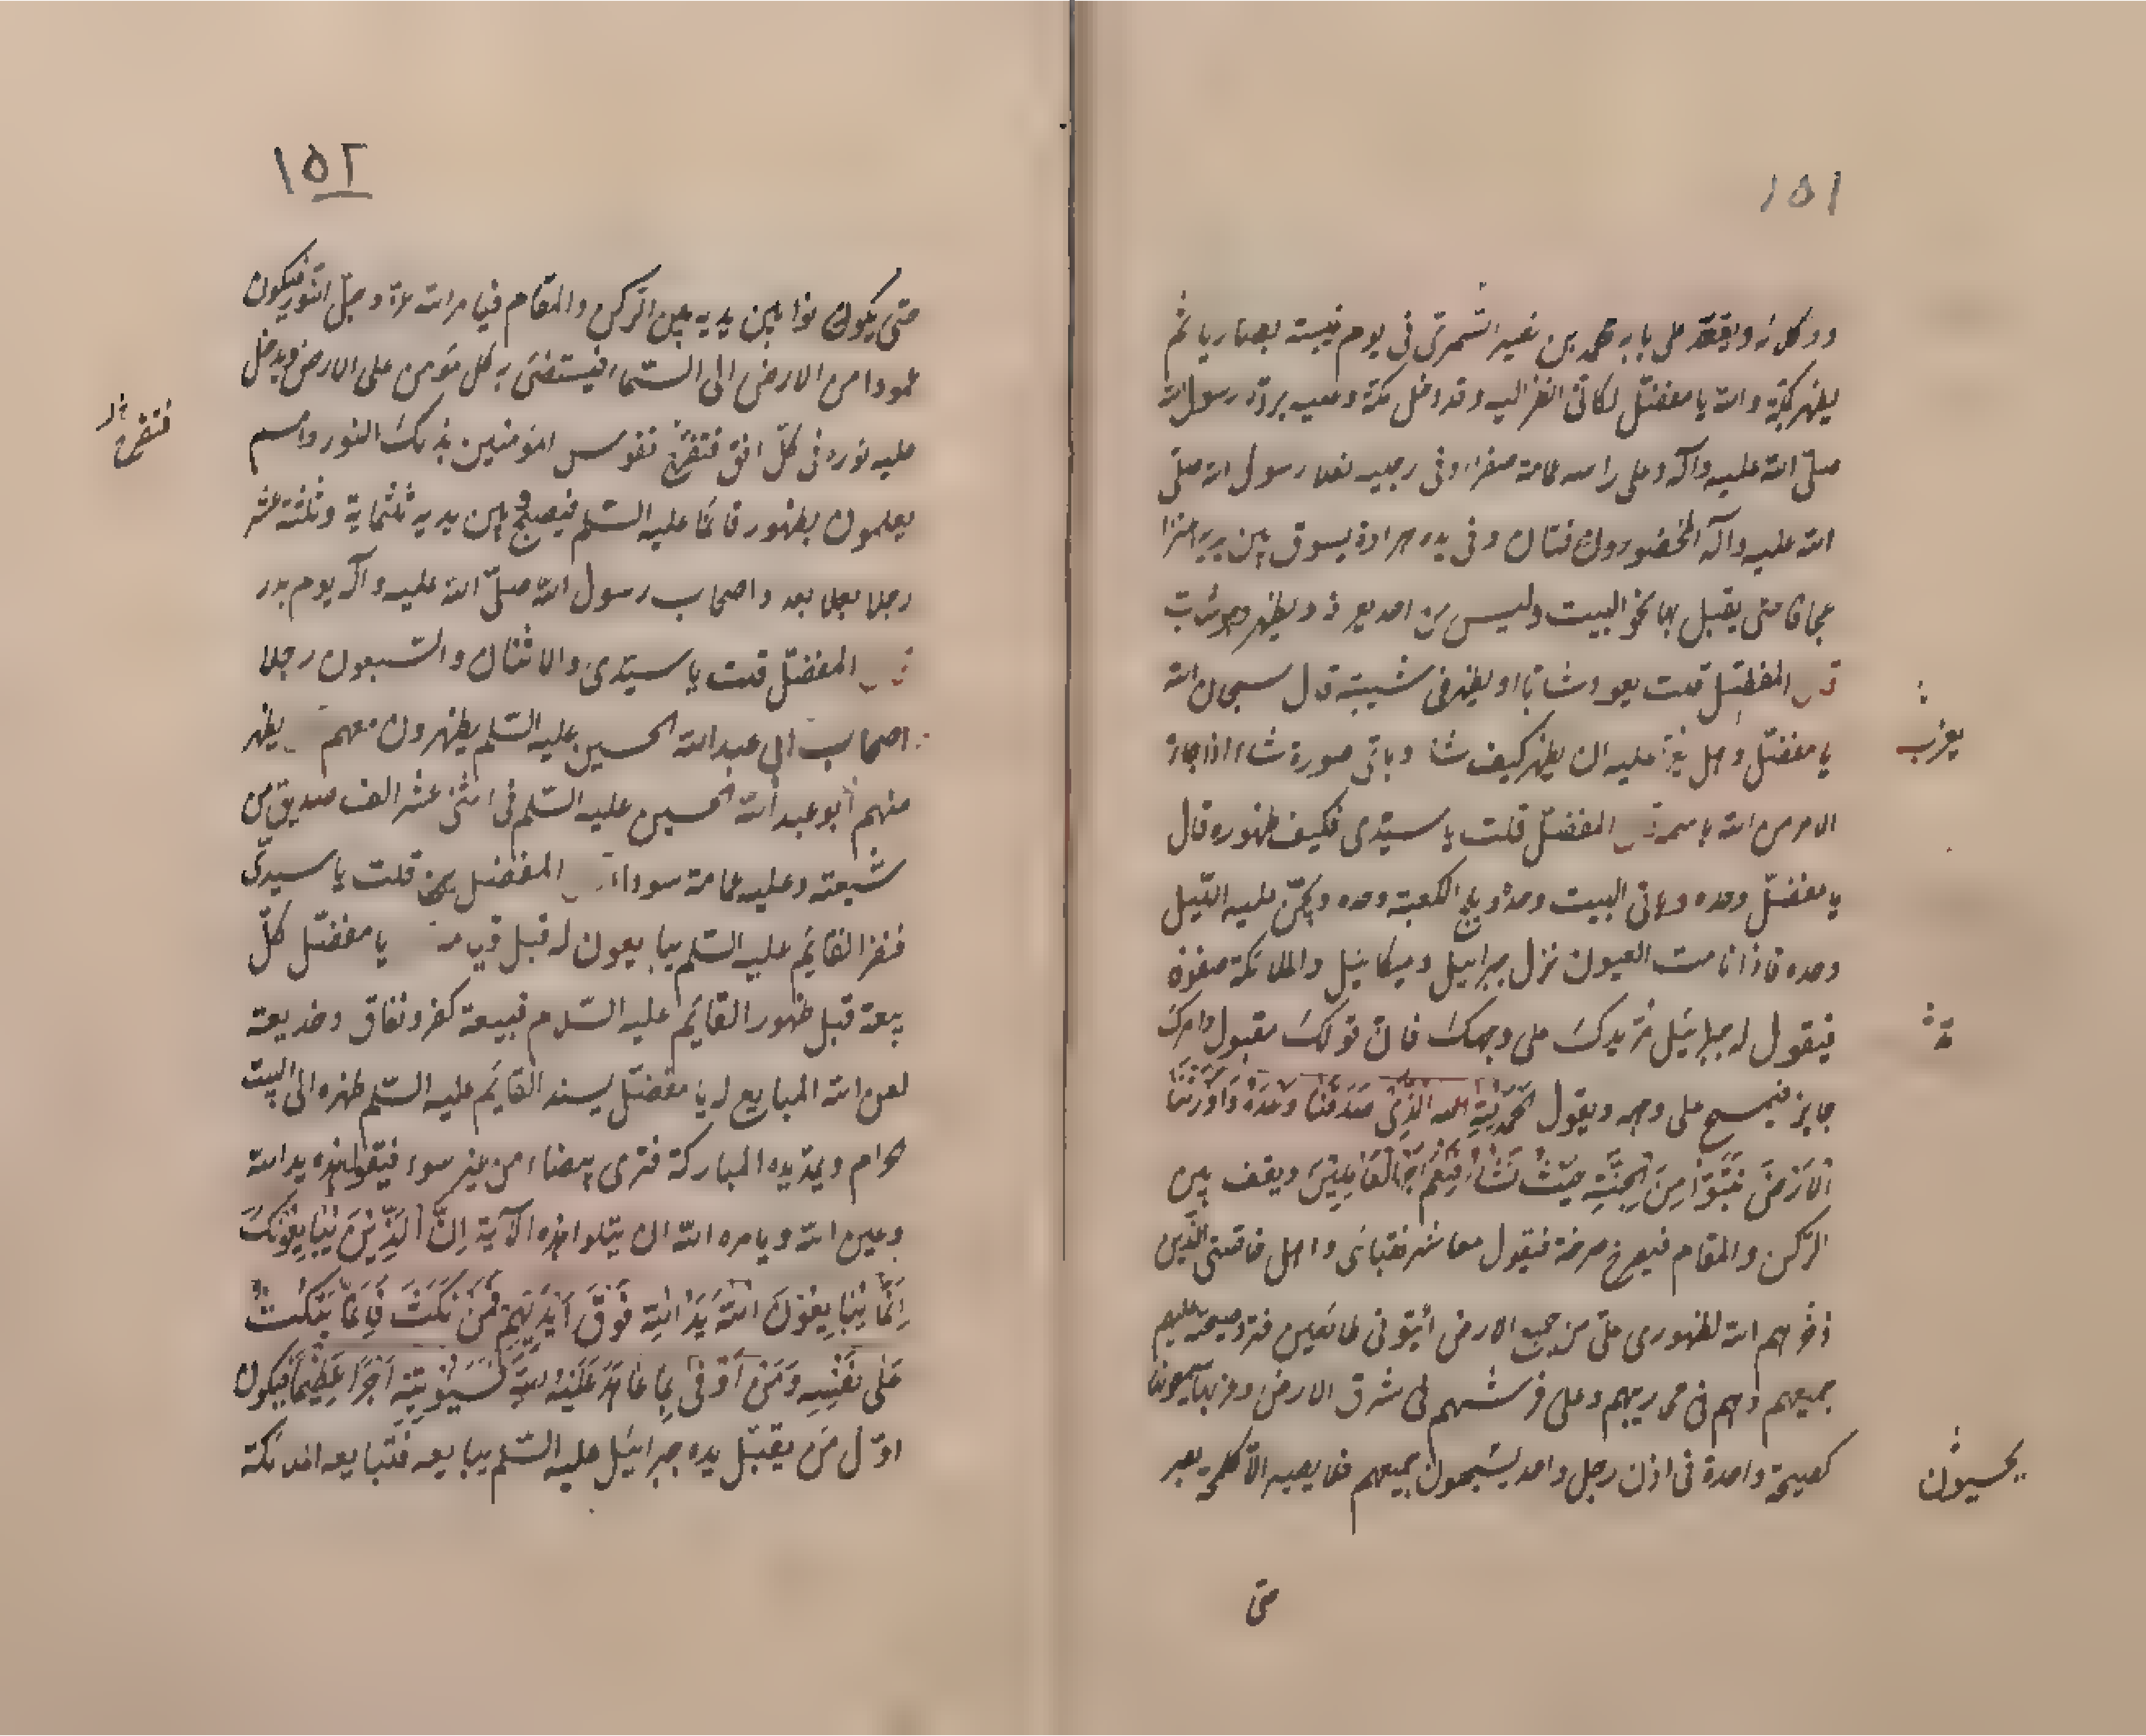 ١٥١
ووكلائه ويقعد على بابه محمد بن نصير النميرى فى يوم غيبته بصاريا ثم
يظهر بمكة والله يا مفضّل لكانّى انظر اليه وقد دخل مكة وعليه بردة رسول الله
صلّى الله عليه وآله وعلى راسه عمامة صفراء وفى رجليه نعلا رسول الله صلّى
الله عليه وآله المخصوفتان وفى يده هراوة يسوق بين يديه اعنزا
عجافا حتى يقبل بها نحو البيت وليس من احد يعرفه ويظهر وهو شاب
قال المفضّل قلت يعود شابا او يظهر فى شيبته قال سبحان الله
يا مفضّل وهل عليه ان يظهر كيف شاء وباى صورة شاء اذا جاءه
الامر من الله باسمه قال المفضّل قلت يا سيّدى فكيف ظهوره قال
يا مفضّل وحده وياتى البيت وحده ويلج الكعبة وحده ويجنّ عليه اللّيل
وحده فاذا نامت العيون نزل جبرائيل وميكائيل والملائكة صفوفا
فيقول له جبرائيل مر يدك على وجهك فان قولك مقبول وامرك
جايز فيمسح على وجهه ويقول الحمد لله الذى صدقنا وعده واورثنا
الْاَرْضَ نَتَبَوَّأُ مِنَ الْجَنَّةِ حَيْثُ نَشَاءُ فَنِعْمَ اَجْرُ الْعَامِلِينَ ويقف بين
الركن والمقام فيصرخ صرخة فيقول معاشر نقبائى واهل خاصتى الّذين
ذخرهم الله لظهورى على وجه الارض أيتونى طائعين فترد صيحته عليهم
جميعهم وهم فى محاريبهم وعلى فرشهم فى شرق الارض وغربها يسمعونها
كصيحة واحدة فى اذن رجل واحد يسمعون جميعهم فما يصيبه الّا كلمحة بصر
يعزب
حتى
١٥٢
حتى يكون نوا بين يديه بين الركن والمقام فيامر الله عزّ وجلّ النّور فيكون
عمودا من الارض الى السّماء فيستضئ به كل مؤمن على الارض ويدخل
عليه نوره فى كلّ افق فتفرح نفوس المؤمنين بذلك النور واسم
يعلمون بظهور قائمنا عليه السّلم فيصبح بين يديه ثلثماية وثلثة عشر
رجلا بعدد اصحاب رسول الله صلّى الله عليه وآله يوم بدر
قال المفضّل قلت يا سيّدى والاثنان والسّبعون رجلا
اصحاب ابى عبد الله الحسين عليه السّلم يظهرون معهم يظهر
منهم أبو عبد الله الحسين عليه السّلم فى اثنى عشر الف صديق من
شيعته وعليه عمامة سوداء قال المفضل قلت يا سيدى
فغير القايم عليه السّلم يبايعون له قبل قيامه يا مفضّل كلّ
بيعة قبل ظهور القايم عليه السّلام فبيعة كفر ونفاق وخديعة
لعن الله المبايع له يا مفضّل يسند القايم عليه السّلم ظهره الى البيت
الحرام ويمدّ يده المباركة فترى بيضاء من غير سوء فيقول هذه يد الله
وعين الله ويامره الله ان يتلوا هذه الآية اِنَّ الَّذِيْنَ يُبَايِعُوْنَكَ
اِنَّمَا يُبَايِعُوْنَ اللهَ يَدُ اللهِ فَوْقَ اَيْدِيْهِمْ فَمَنْ نَكَثَ فَاِنَّمَا يَنْكُثُ
عَلٰى نَفْسِهِ وَمَنْ اَوْفٰى بِمَا عَاهَدَ عَلَيْهُ اللهَ فَسَيُؤْتِيْهِ اَجْرًا عَظِيْمًا فيكون
اوّل من يقبّل يده جبرائيل عليه السّلم يبايعه فتبايعه الملائكة